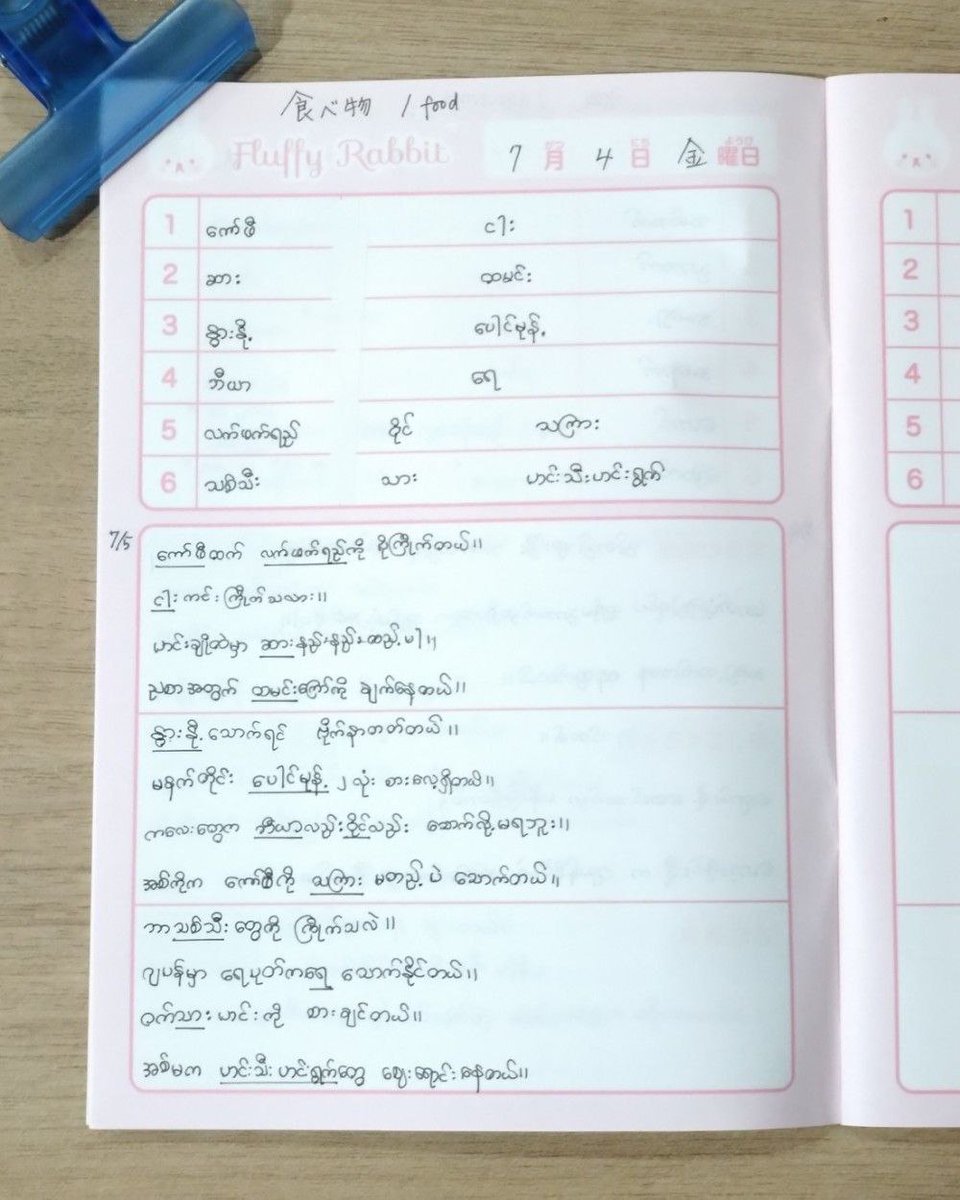 食べ物 / food
Fluffy Rabbit 7月 4日 金曜日
1 ကော်ဖီ ငါး
2 ဆား ထမင်း
3 နွားနို့ ပေါင်မုန့်
4 ဘီယာ ရေ
5 လက်ဖက်ရည် ဝိုင် သကြား
6 သစ်သီး သား ဟင်းသီးဟင်းရွက်
7/5 ကော်ဖီထက် လက်ဖက်ရည်ကို ပိုကြိုက်တယ်။
ငါးကင်း ကြိုက်သလား။
ဟင်းချိုထဲမှာ ဆားနည်းနည်းထည့်ပါ။
ညစာအတွက် ထမင်းကြော်ကို ချက်နေတယ်။
နွားနို့သောက်ရင် ဗိုက်နာတတ်တယ်။
မနက်တိုင်း ပေါင်မုန့် ၂ လုံး စားလေ့ရှိတယ်။
ကလေးတွေက ဘီယာလည်းဝိုင်လည်း သောက်လို့မရဘူး။
အစ်ကိုက ကော်ဖီကို သကြား မတည့်ပဲ သောက်တယ်။
ဘာသစ်သီးတွေကို ကြိုက်သလဲ။
ဂျပန်မှာ ရေပုတ်ကရေ သောက်နိုင်တယ်။
ဝက်သားဟင်းကို စားချင်တယ်။
အစ်မက ဟင်းသီးဟင်းရွက်တွေ ဈေးရောင်းနေတယ်။
1
2
3
4
5
6